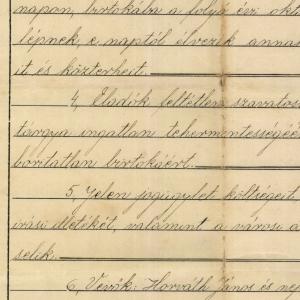 napon, birtokába a folyó évi okt
lépnek, e naptól élvezik annak
it és közterheit.
4, Eladók feltétlen szavatos
tárgya ingatlan tehermentességéé
borítatlan birtokáért.
5, Jelen jogügylet költségeit
írási illetékét, valamint a városi a
selik.
6, Vevők: Horváth János és nej